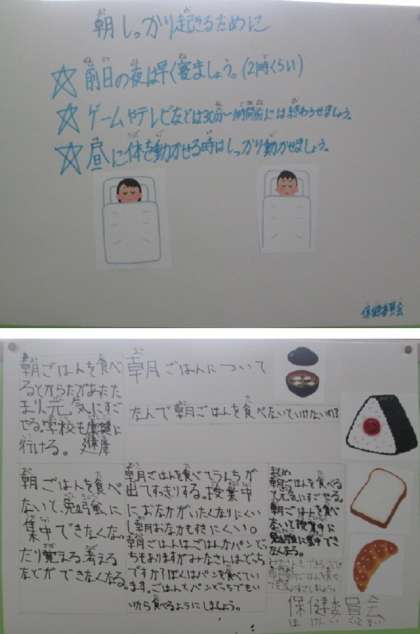 朝しっかり起きるために
☆前日の夜は早く寝ましょう。(21時くらい)
☆ゲームやテレビなどは30分~1時間前には終わらせましょう。
☆昼に体を動かせる時はしっかり動かせましょう。
保健委員会
朝ごはんについて
なんで朝ごはんを食べないといけないの?
朝ごはんを食べ
るとからだがあたた
まり元気にすご
せる。学校も
行ける。
朝ごはんを食べ
ないと、勉強に
集中できなくな
たり覚える、考える
などができなくなる。
朝ごはんを食べてうんちが
出てすっきりする。授業中
におなかがいたくなりにくい
し朝おなかもすきにくい。
朝ごはんはごはんかパンどっ
ちもありますがみなさんはどっち
ですか?ぼくはパンを食べてい
ます。ごはんもパンどっちでもい
いから食べるようにしましょう。
まとめ
朝ごはんを食べる
と元気にすごせる。
朝ごはんを食べ
ないと授業中に
勉強に集中でき
なくなる。
保健委員会
ほけんいいんかい